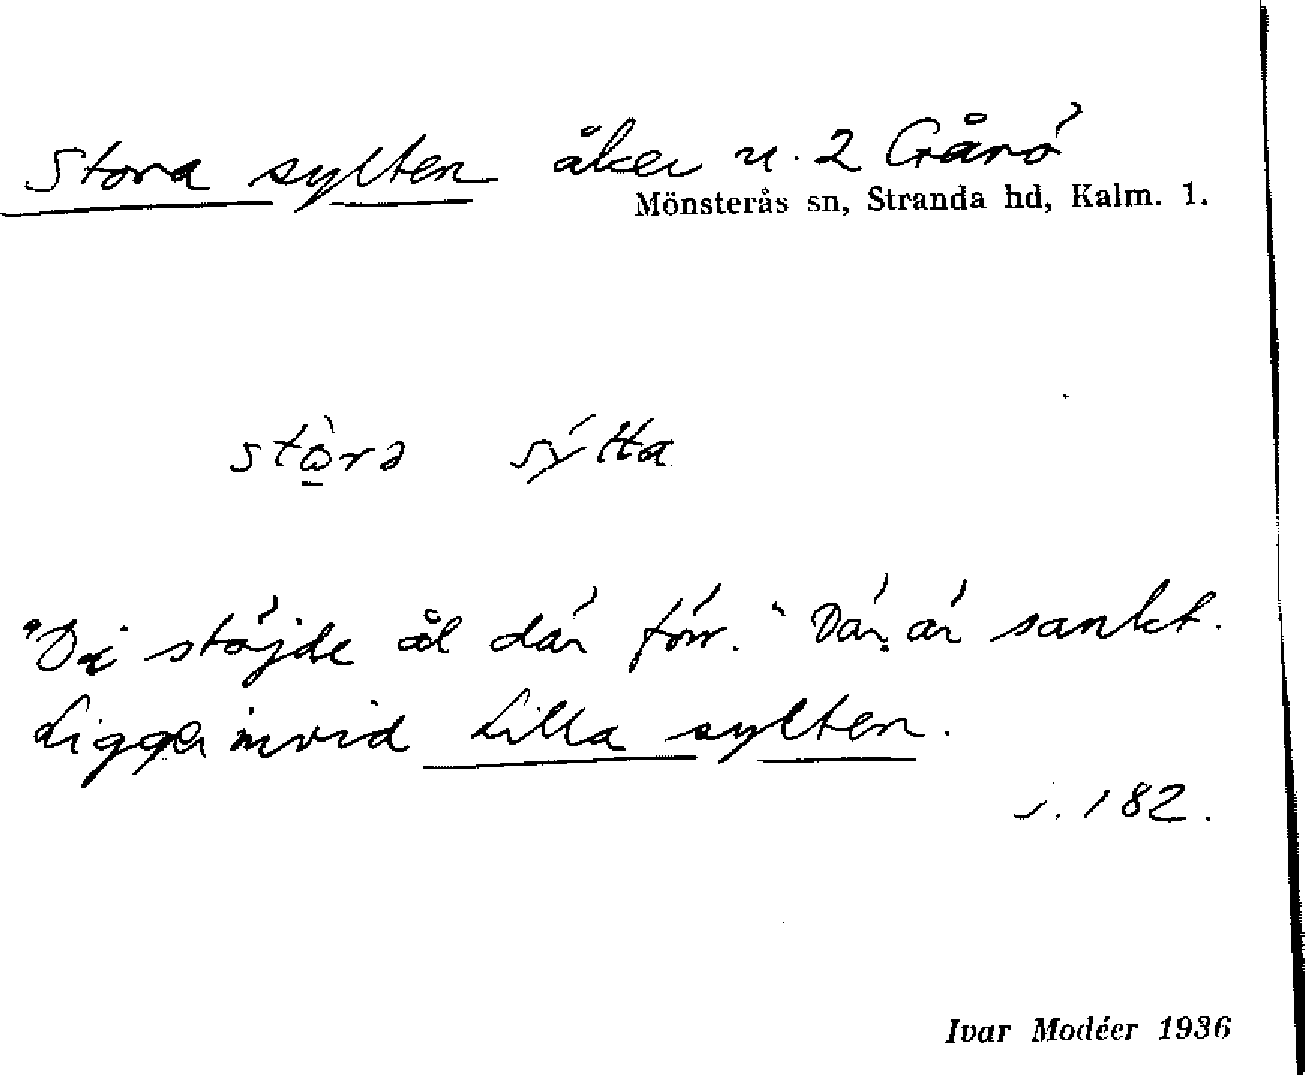 Stora sylten åker u. 2 Gårö
Mönsterås sn, Stranda hd, Kalm. l.
stòrə sýlta
"Di stöjde ål där förr." Där är sankt.
Ligger invid Lilla sylten.
s. 182.
Ivar Modéer 1936